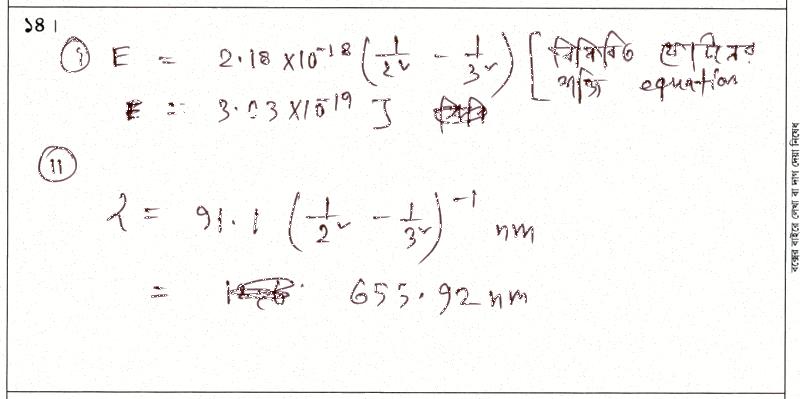 ১৪।
(i) E = 2.18 X10^-18 (1/2² - 1/3²) [বিকিরিত ফোটনের
শক্তি equation
E = 3.03 X10^-19 J
(ii)
λ = 91.1 (1/2² - 1/3²)^-1 nm
= 655.92 nm
বক্সের বাইরে লেখা বা দাগ দেয়া নিষেধ